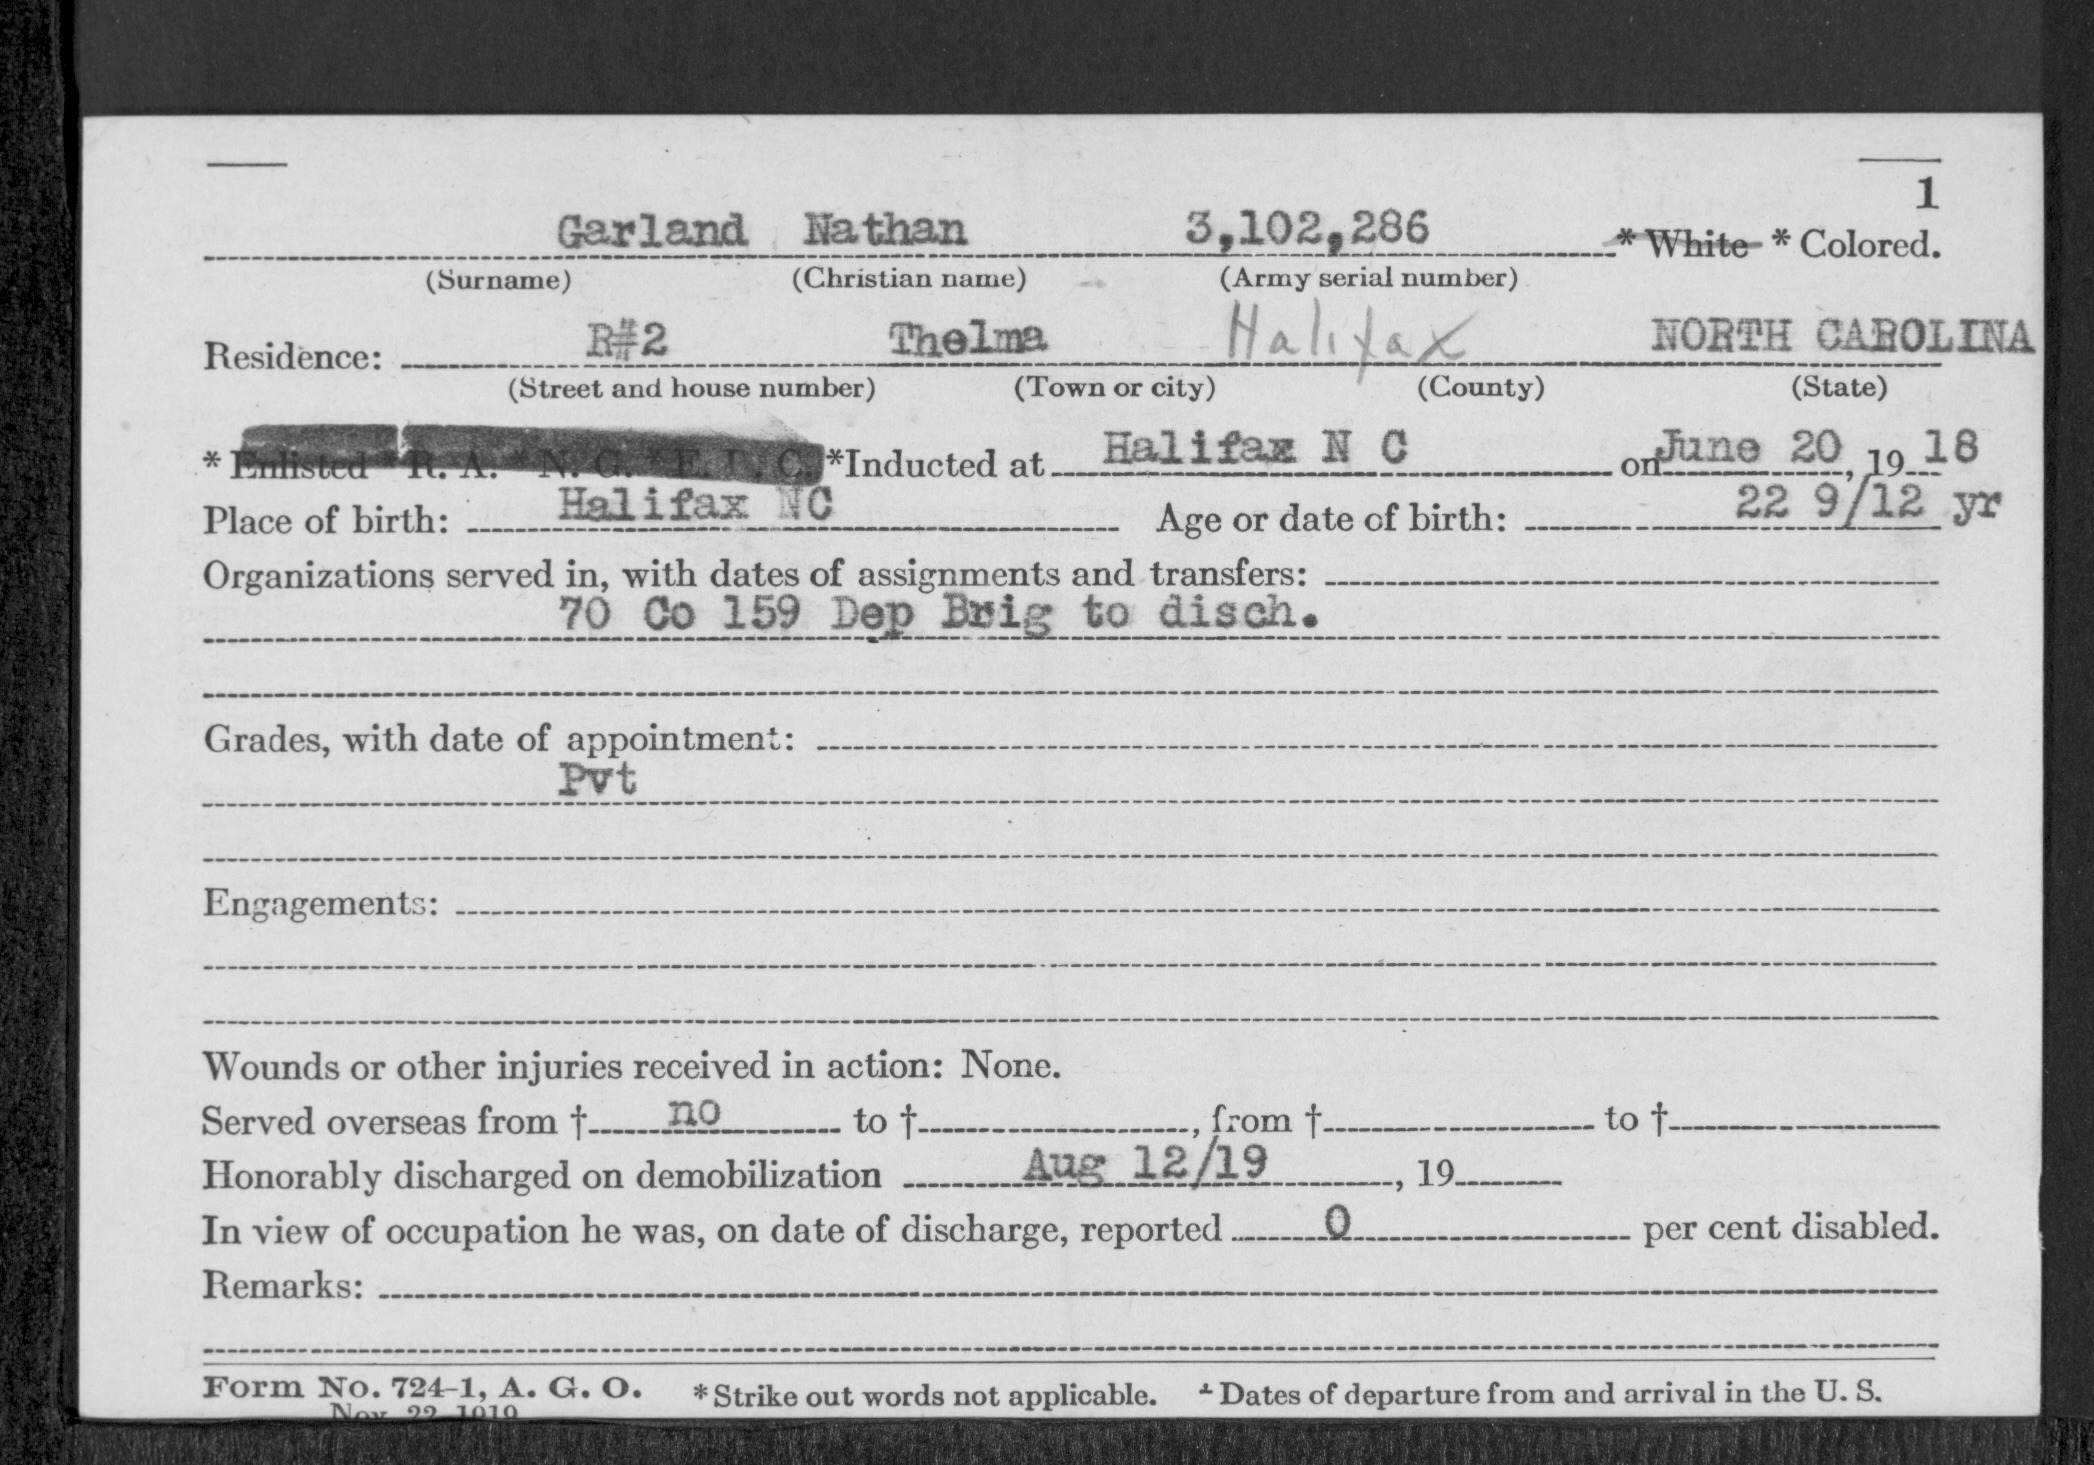 1
Garland Nathan 3,102,286 * White * Colored.
(Surname) (Christian name) (Army serial number)
Residence: R#2 Thelma Halifax NORTH CAROLINA
(Street and house number) (Town or city) (County) (State)
* Enlisted * R. A. * N. G. * E. R. C. *Inducted at Halifax N C on June 20, 19 18
Place of birth: Halifax NC Age or date of birth: 22 9/12 yr
Organizations served in, with dates of assignments and transfers:
70 Co 159 Dep Brig to disch.
Grades, with date of appointment:
Pvt
Engagements:
Wounds or other injuries received in action: None.
Served overseas from † no to †, from † to †
Honorably discharged on demobilization Aug 12/19, 19
In view of occupation he was, on date of discharge, reported 0 per cent disabled.
Remarks:
Form No. 724-1, A. G. O. * Strike out words not applicable. † Dates of departure from and arrival in the U. S.
Nov. 22, 1919